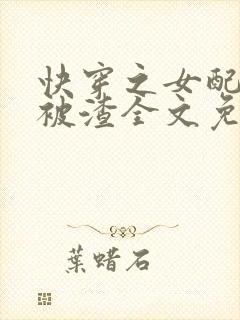 快穿之女配
被渣全文免
葉蜡石